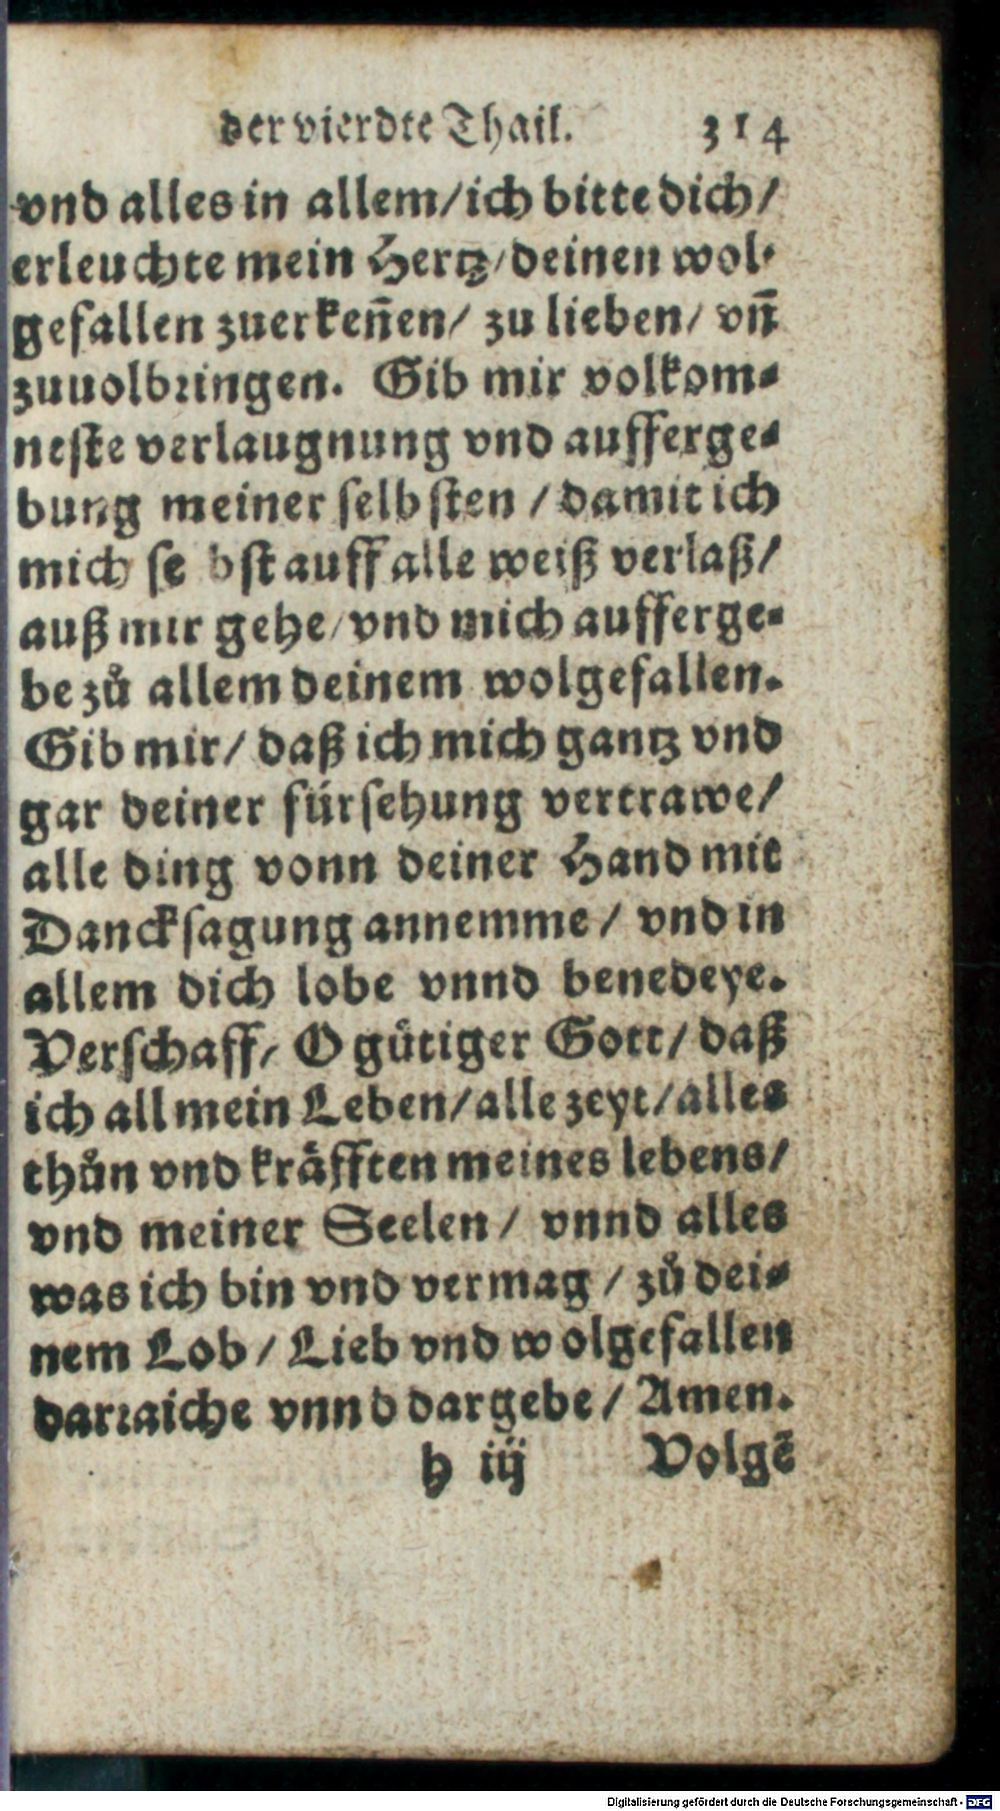 der vierdte Thail. 314
vnd alles in allem/ich bitte dich/
erleuchte mein Hertz/deinen wol-
gefallen zuerkeñen/ zu lieben/ vñ
zuuolbringen. Gib mir volkom-
neste verlaugnung vnd aufferge-
bung meiner selbsten / damit ich
mich se bst auff alle weiß verlaß/
auß mir gehe/vnd mich aufferge-
be zů allem deinem wolgefallen.
Gib mir/ daß ich mich gantz vnd
gar deiner fürsehung vertrawe/
alle ding vonn deiner Hand mit
Dancksagung annemme / vnd in
allem dich lobe vnnd benedeye.
Verschaff/ O gütiger Gott/ daß
ich all mein Leben/alle zeyt/alles
thůn vnd kräfften meines lebens/
vnd meiner Seelen/ vnnd alles
was ich bin vnd vermag / zů dei-
nem Lob / Lieb vnd wolgefallen
darraiche vnnd dargebe / Amen.
h iij Volgē
Digitalisierung gefördert durch die Deutsche Forschungsgemeinschaft - DFG